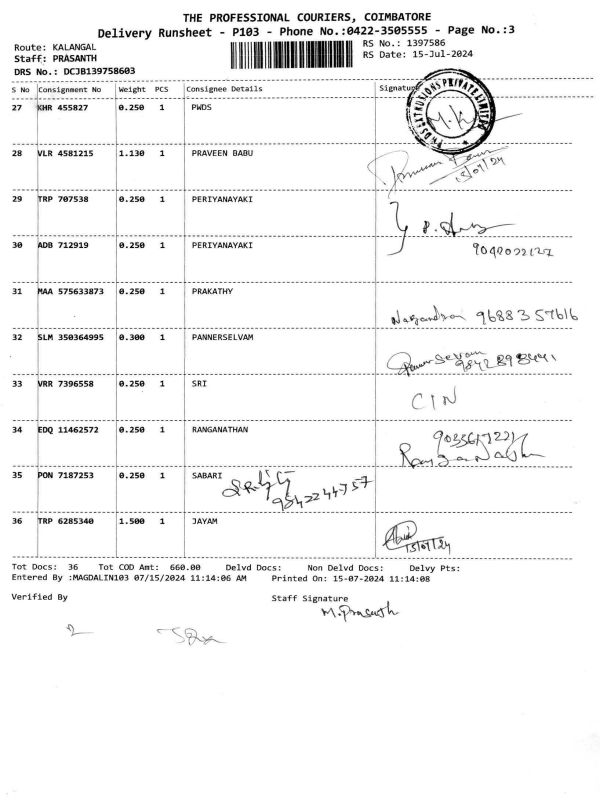 THE PROFESSIONAL COURIERS, COIMBATORE
Delivery Runsheet - P103 - Phone No.:0422-3505555 - Page No.:3
Route: KALANGAL
RS No.: 1397586
Staff: PRASANTH
RS Date: 15-Jul-2024
DRS No.: DCJB139758603
S No Consignment No Weight PCS Consignee Details Signature
27 KHR 455827 0.250 1 PWDS
28 VLR 4581215 1.130 1 PRAVEEN BABU
15/07/24
29 TRP 707538 0.250 1 PERIYANAYAKI
30 ADB 712919 0.250 1 PERIYANAYAKI
31 MAA 575633873 0.250 1 PRAKATHY
9688357616
32 SLM 350364995 0.300 1 PANNERSELVAM
33 VRR 7396558 0.250 1 SRI
CIN
34 EDQ 11462572 0.250 1 RANGANATHAN
Ranganathan
35 PON 7187253 0.250 1 SABARI
9842244757
36 TRP 6285340 1.500 1 JAYAM
15/07/24
Tot Docs: 36 Tot COD Amt: 660.00 Delvd Docs: Non Delvd Docs: Delvy Pts:
Entered By :MAGDALIN103 07/15/2024 11:14:06 AM Printed On: 15-07-2024 11:14:08
Verified By Staff Signature
M.Prasanth